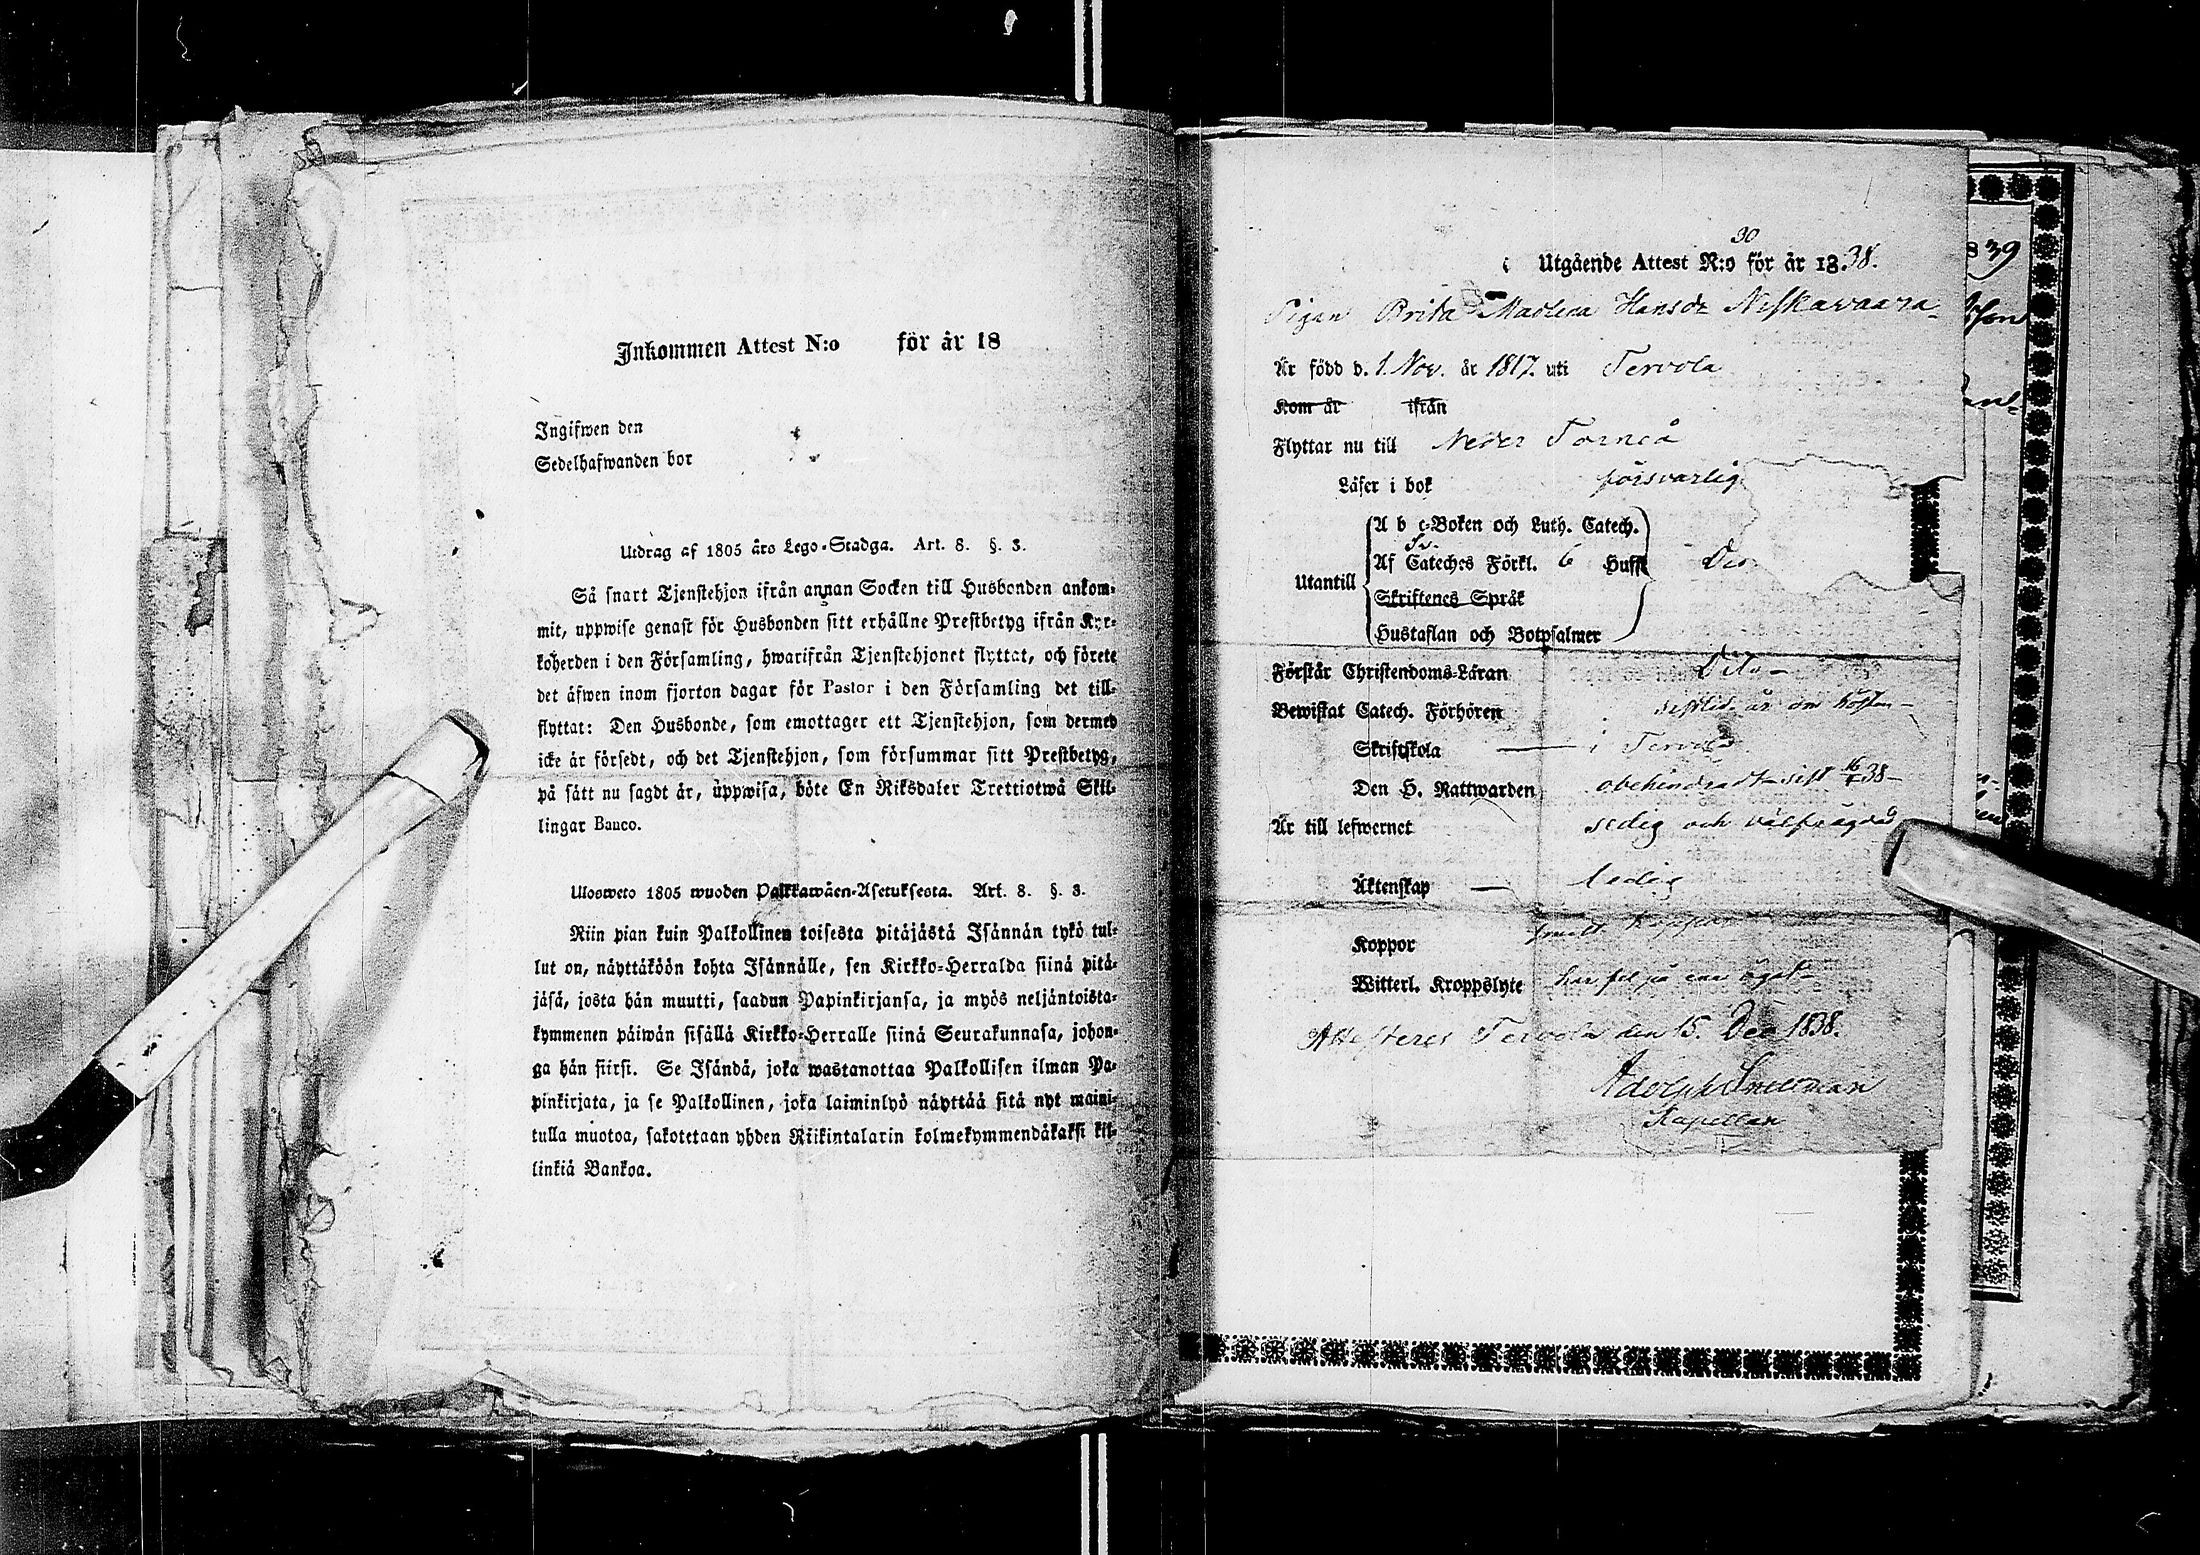 Inkommen Attest N:o för år 18
Ingifwen den
Sedelhafwanden bor
Utdrag af 1805 års Lego-Stadga. Art. 8. §. 3.
Så snart Tjenstehjon ifrån annan Socken till Husbonden ankom-
mit, uppwise genast för Husbonden sitt erhållne Prestbetyg ifrån Kyr-
koherden i den Församling, hwarifrån Tjenstehjonet flyttat, och förete
det äfwen inom fjorton dagar för Pastor i den Församling det till-
flyttat: Den Husbonde, som emottager ett Tjenstehjon, som dermed
icke är försedt, och det Tjenstehjon, som försummar sitt Prestbetyg,
på sätt nu sagdt är, uppwisa, böte En Riksdaler Trettiotwå Skil-
lingar Banco.
Ulosweto 1805 wuoden Palkkawäen-Asetuksesta. Art. 8. §. 3.
Niin pian kuin Palkollinen toisesta pitäjästä Isännän tykö tul-
lut on, näyttäköön kohta Isännälle, sen Kirkko-Herralda siinä pitä-
jäsä, josta hän muutti, saadun Papinkirjansa, ja myös neljäntoista-
kymmenen päiwän sisällä Kirkko-Herralle siinä Seurakunnasa, johon-
ga hän siirsi. Se Isändä, joka wastanottaa Palkollisen ilman Pa-
pinkirjata, ja se Palkollinen, joka laiminlyö näyttää sitä nyt maini-
tulla muotoa, sakotetaan yhden Riikintalarin kolmekymmendäkaksi kil-
linkiä Bankoa.
30
Utgående Attest N:o för år 1838.
Pigan Brita Hansdr Niskavaara
Är född d. 1. Nov. år 1817. uti Tervola
Kom år ifrån
Flyttar nu till Neder Torneå
Läser i bok försvarlig
A b c-Boken och Luth. Catech.
Sv.
Utantill Af Catech:s Förkl. 6 Huff
Skriftenes Språk
Hustaflan och Botpsalmer
Förstår Christendoms-Läran Dito
Bewistat Catech. Förhören om hösten
Skriftskola i Tervola
Den H. Nattwarden obehindradt sist 16/ 38
Är till lefwernet sedig och välfrägdad
Äktenskap ledig
Koppor
Witterl. Kroppslyte har fel på ena ögat
Attesteres Tervola den 15. Dec 1838.
Adolph Snellman
Kapellan
839